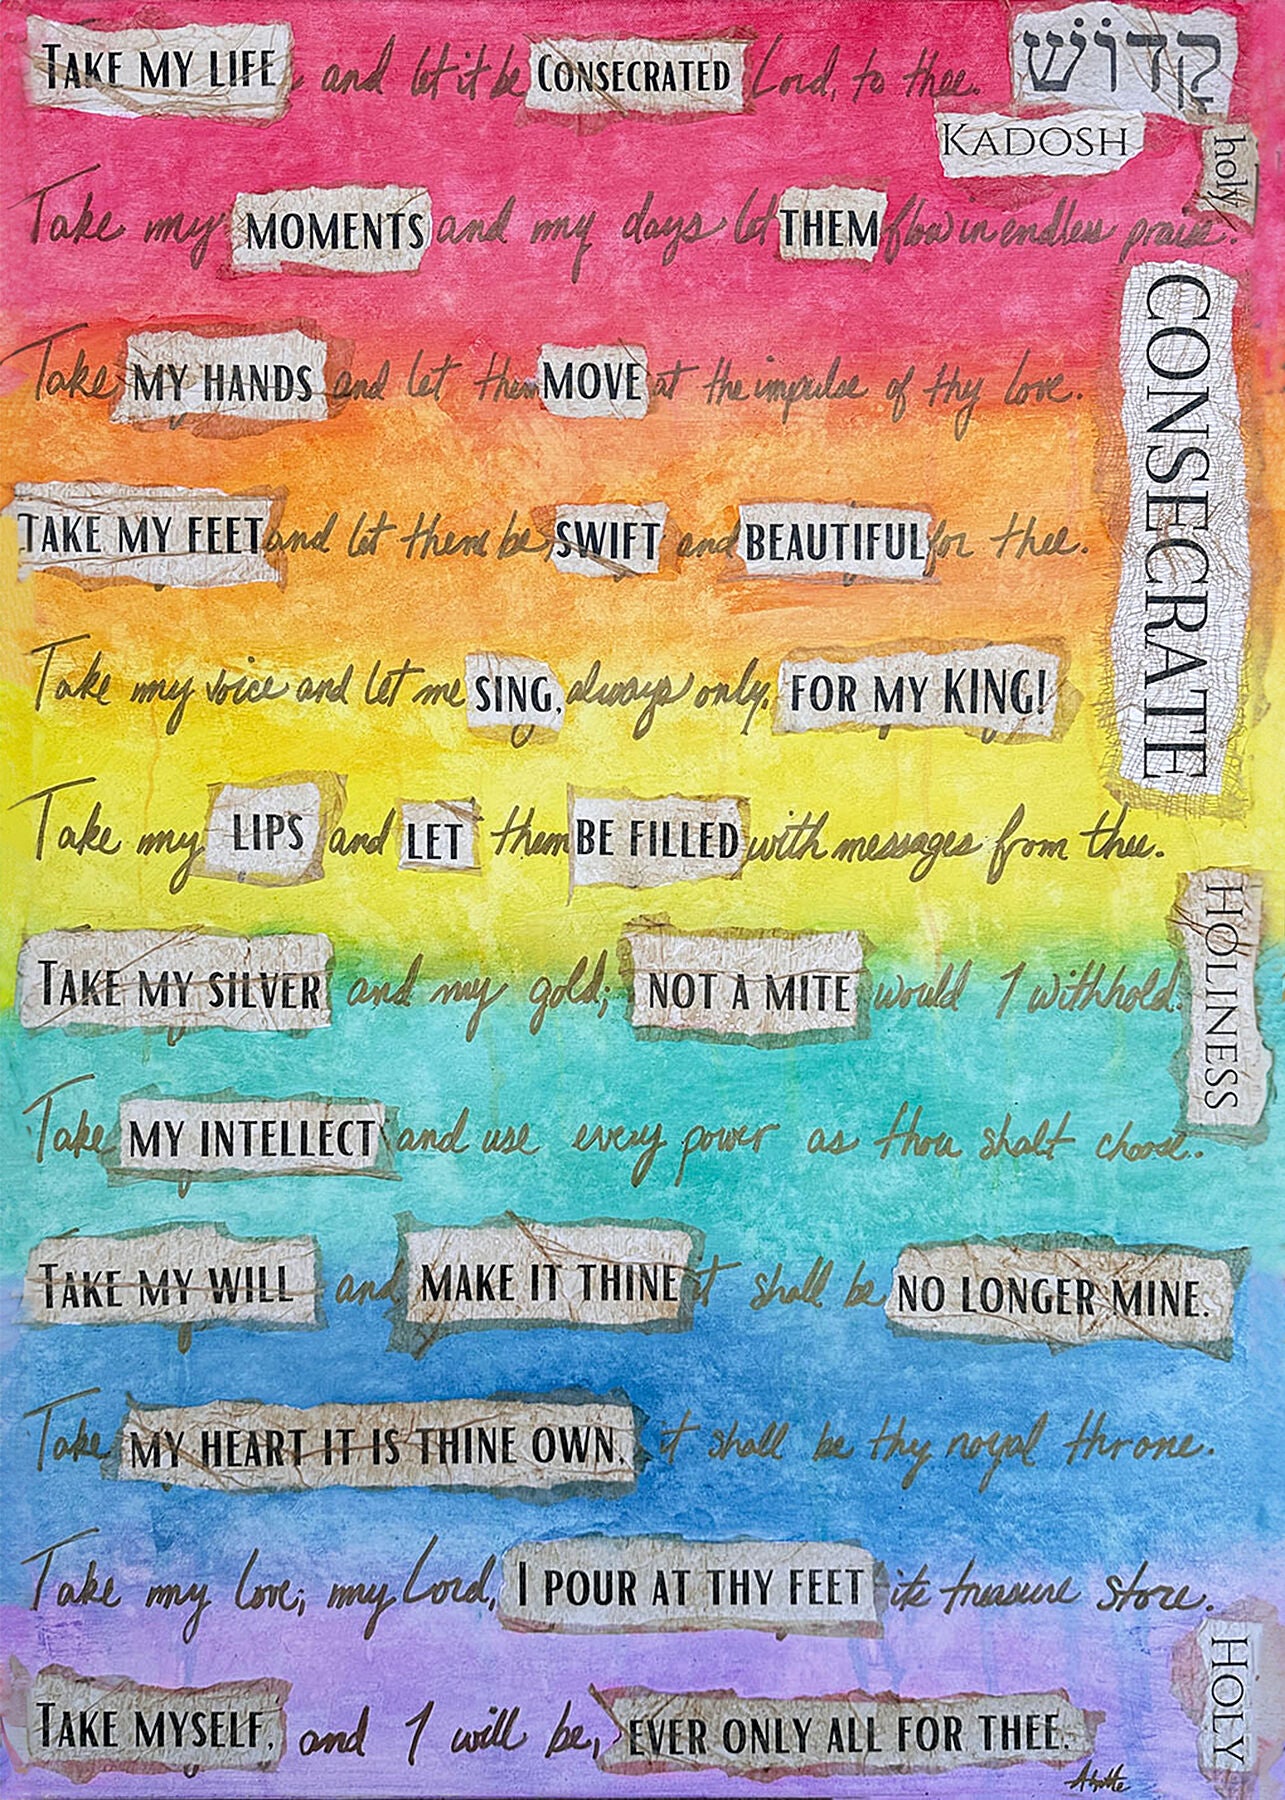 TAKE MY LIFE and let it be CONSECRATED Lord, to thee.
קָדוֹשׁ
KADOSH
holy
Take my MOMENTS and my days let THEM flow in endless praise.
Take MY HANDS and let them MOVE at the impulse of thy love.
CONSECRATE
TAKE MY FEET and let them be SWIFT and BEAUTIFUL for thee.
Take my voice and let me SING, always only, FOR MY KING!
Take my LIPS and LET them BE FILLED with messages from thee.
TAKE MY SILVER and my gold; NOT A MITE would I withhold.
HOLINESS
Take MY INTELLECT and use every power as thou shalt choose..
TAKE MY WILL and MAKE IT THINE it shall be NO LONGER MINE.
Take MY HEART IT IS THINE OWN, it shall be thy royal throne.
Take my love; my Lord, I POUR AT THY FEET its treasure store.
HOLY
TAKE MYSELF, and I will be, EVER ONLY ALL FOR THEE.